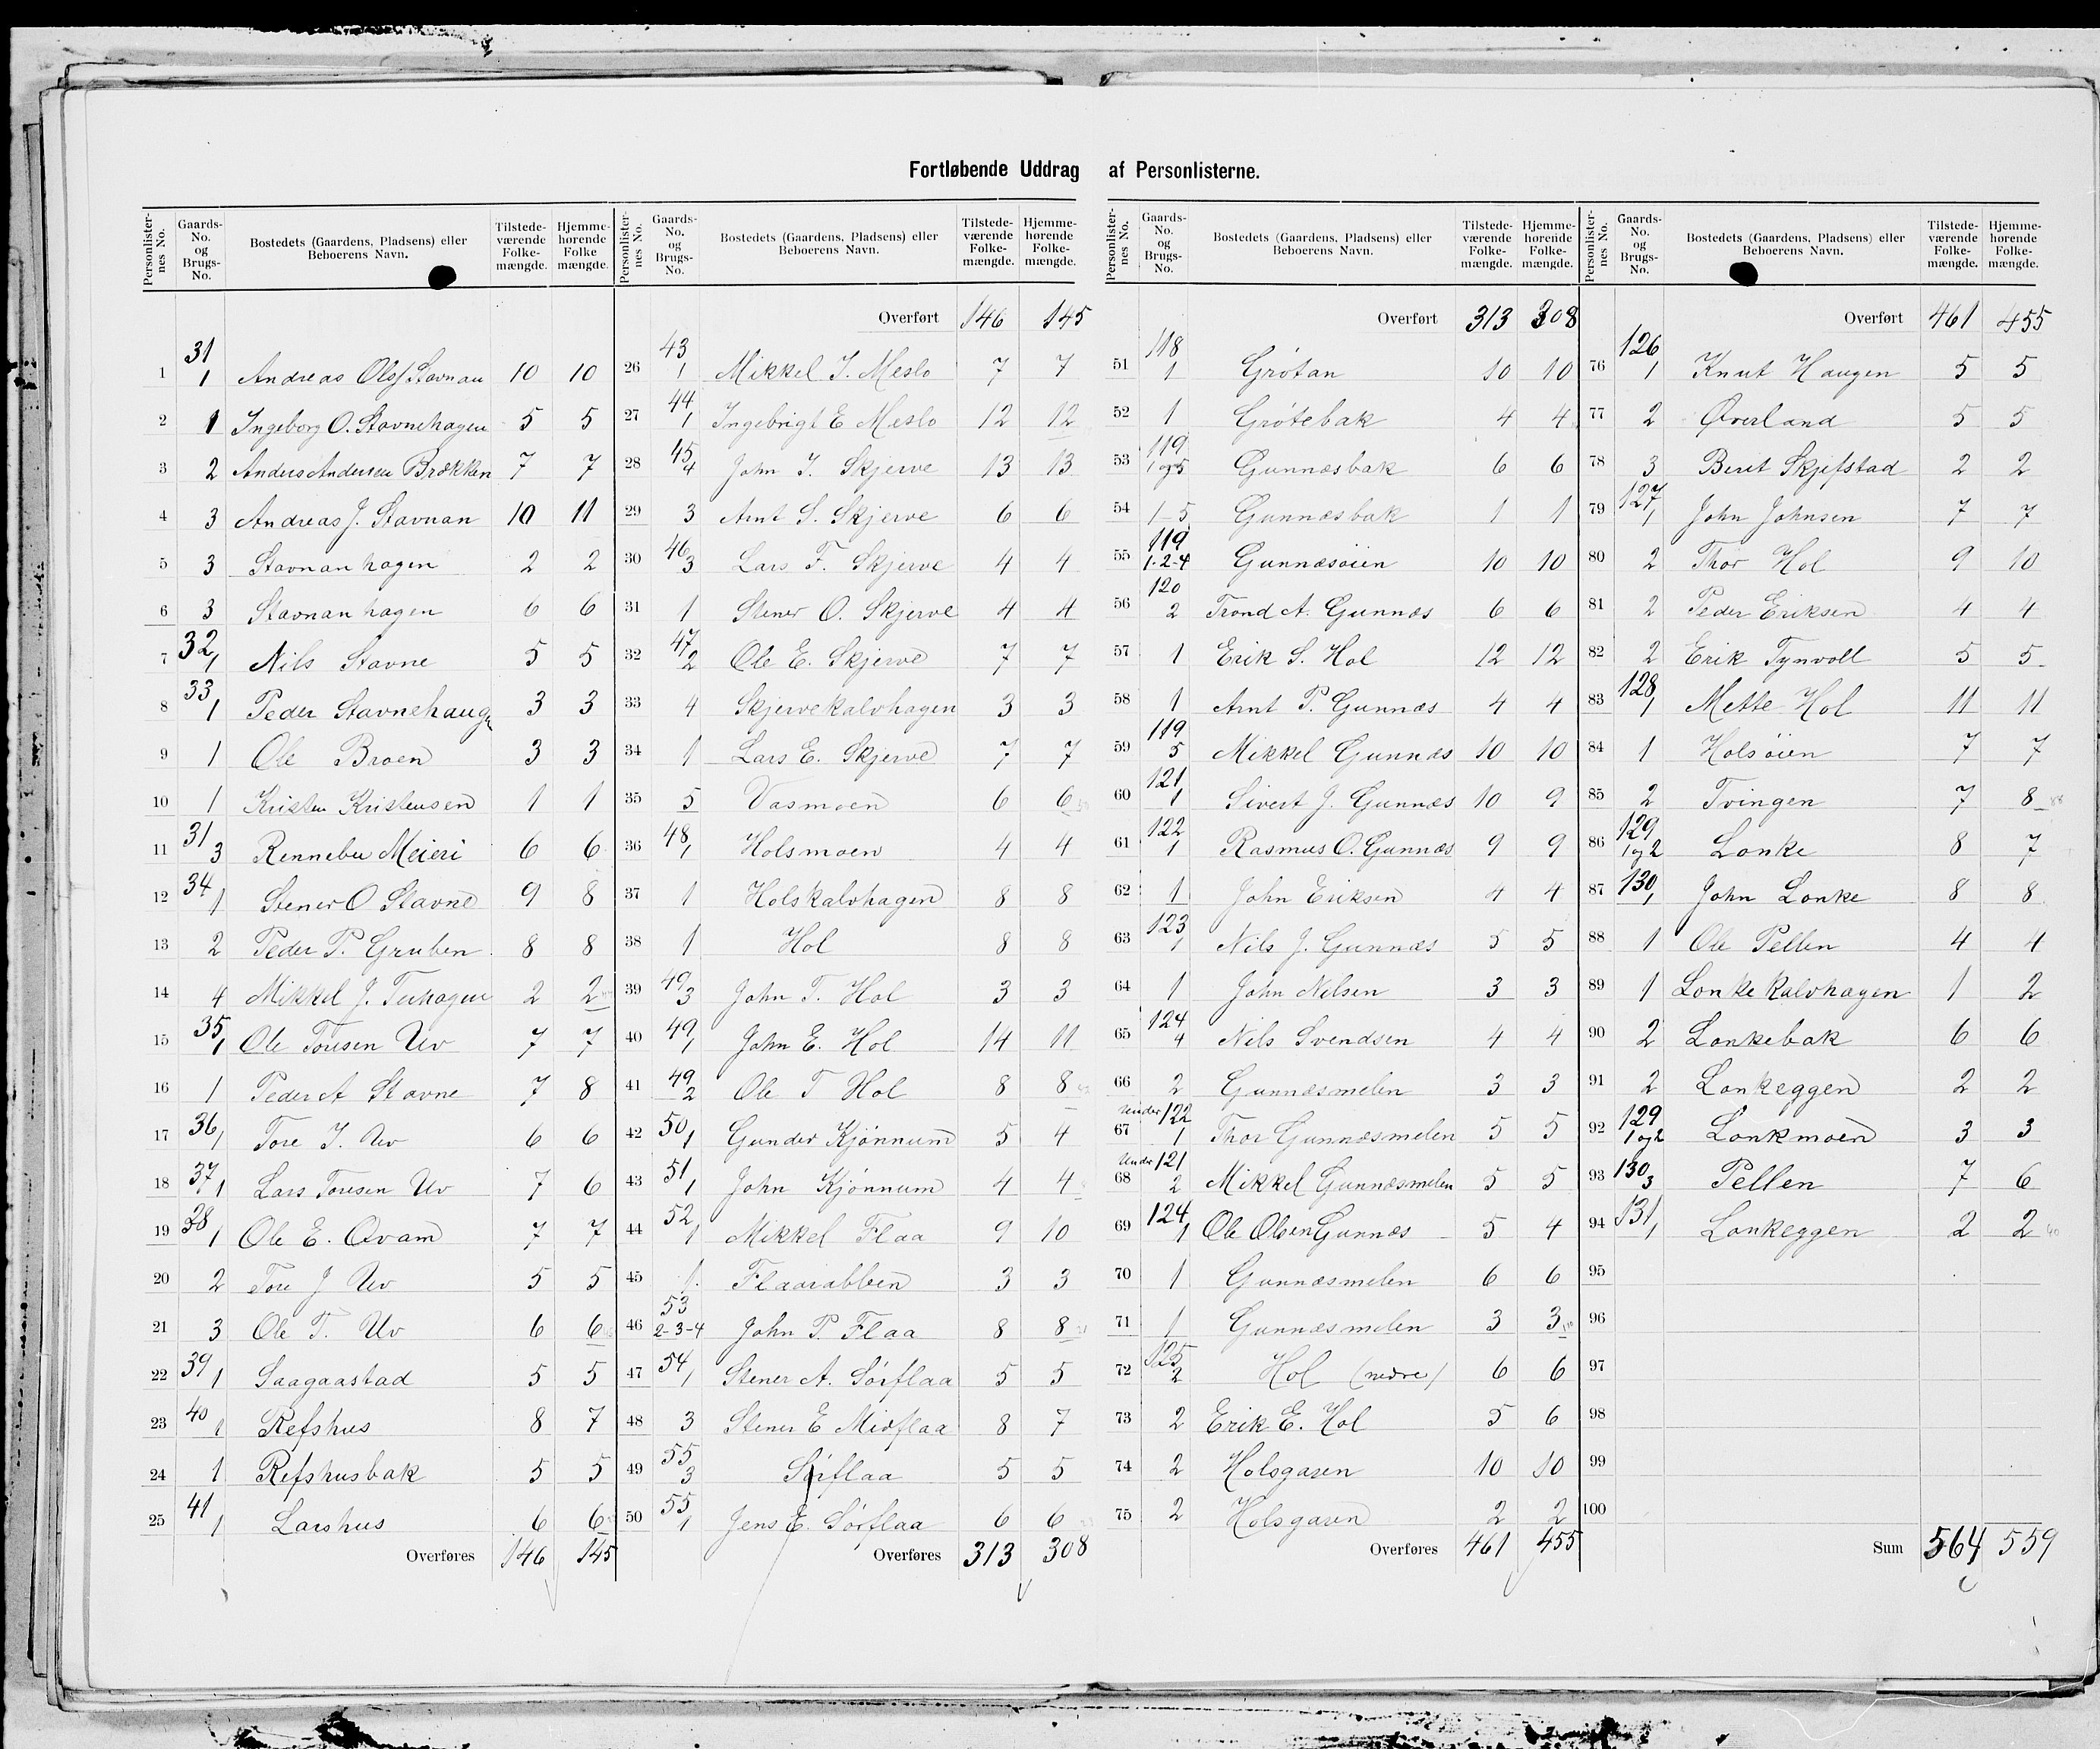 Fortløbende Uddrag af Personlisterne.
Personlister-nes No. Gaards-No. og Brugs-No. Bostedets (Gaardens, Pladsens) eller Beboerens Navn. Tilstede-værende Folke-mængde. Hjemme-hørende Folke mængde.
31
1 1 Andreas Olsf Stavnan 10 10
2 1 Ingeborg O. Stavnehagen 5 5
3 2 Anders Andersen Brækken 7 7
4 3 Andreas J. Stavnan 10 11
5 3 Stavnanhagen 2 2
6 3 Stavnanhagen 6 6
7 32/1 Nils Stavne 5 5
8 33/1 Peder Stavnehaugn 3 3
9 1 Ole Broen 3 3
10 1 Kristen Kristensen 1 1
11 31/3 Rennebu Meieri 6 6
12 34/1 Stener O Stavne 9 8
13 2 Peder P. Gruben 8 8
14 4 Mikkel J. 2 2
15 35/1 Ole Toresen Uv 7 7
16 1 Peder A Stavne 7 8
17 36/1 Tore J. Uv 6 6
18 37/1 Lars Toresen Uv 7 6
19 38/1 Ole E. Qvam 7 7
20 2 Tore J Uv 5 5
21 3 Ole T. Uv 6 6
22 39/1 Saagaastad 5 5
23 40/1 Refshus 8 7
24 1 Refshusbak 5 5
25 41/1 Larshus 6 6
Overføres 146 145
Personlister-nes No. Gaards-No. og Brugs-No. Bostedets (Gaardens, Pladsens) eller Beboerens Navn. Tilstede-værende Folke-mængde. Hjemme-hørende Folke-mængde.
Overført 146 145
26 43/1 Mikkel J. Meslo 7 7
27 44/1 Ingebrigt E Meslo 12 12
28 45/4 John J. Skjerve 13 13
29 3 Arnt S. Skjerve 6 6
30 46/3 Lars F. Skjerve 4 4
31 1 Stener O. Skjerve 4 4
32 47/2 Ole E. Skjerve 7 7
33 4 Skjervekalvhagen 3 3
34 1 Lars E. Skjerve 7 7
35 5 Vasmoen 6 6
36 48/1 Holsmoen 4 4
37 1 Holskalvhagen 8 8
38 1 Hol 8 8
39 49/3 John T. Hol 3 3
40 49/1 John E. Hol 14 11
41 49/2 Ole T Hol 8 8
42 50/1 Gunder Kjønnum 5 4
43 51/1 John Kjønnum 4 4
44 52/1 Mikkel Flaa 9 10
45 1. Flaarabben 3 3
46 53/2-3-4 John P. Flaa 8 8
47 54/1 Stener A. Sørflaa 5 5
48 3 Stener E Midflaa 8 7
49 55/3 Sørflaa 5 5
50 55/1 Jens E. Sørflaa 6 6
Overføres 313 308
Personlister-nes No. Gaards-No. og Brugs-No. Bostedets (Gaardens, Pladsens) eller Beboerens Navn. Tilstede-værende Folke-mængde. Hjemme-hørende Folke-mængde.
Overført 313 308
51 118/1 Grøtan 10 10
52 1 Grøtebak 4 4
53 119/1 og 5 Gunnæsbak 6 6
54 1-5 Gunnæsbak 1 1
55 119/1-2-4 Gunnæsøien 10 10
56 120/2 Trond A. Gunnæs 6 6
57 1 Erik S. Hol 12 12
58 1 Arnt P. Gunnæs 4 4
59 119/5 Mikkel Gunnæs 10 10
60 121/1 Sivert J. Gunnæs 10 9
61 122/1 Rasmus O. Gunnæs 9 9
62 1 John Eriksen 4 4
63 123/1 Nils J. Gunnæs 5 5
64 1 John Nilsen 3 3
65 124/4 Nils Svendsen 4 4
66 2 Gunnæsmelen 3 3
67 Under 122/1 Thor Gunnæsmelen 5 5
68 Under 121/2 Mikkel Gunnæsmelen 5 5
69 124/1 Ole Olsen Gunnæs 5 4
70 1 Gunnæsmelen 6 6
71 1 Gunnæsmelen 3 3
72 125/2 Hol (nedre) 6 6
73 2 Erik E. Hol 5 6
74 2 Holsgaren 10 10
75 2 Holsgaren 2 2
Overføres 461 455
Personlister-nes No. Gaards-No. og Brugs-No. Bostedets (Gaardens, Pladsens) eller Beboerens Navn. Tilstede-værende Folke-mængde. Hjemme-hørende Folke-mængde.
Overført 461 455
76 126/1 Knut Haugen 5 5
77 2 Øverland 5 5
78 3 Berit Skjefstad 2 2
79 127/1 John Johnsen 7 7
80 2 Thor Hol 9 10
81 2 Peder Eriksen 4 4
82 2 Erik Tynvoll 5 5
83 128/1 Mette Hol 11 11
84 1 Holsøien 7 7
85 2 Tvingen 7 8
86 129/1 og 2 Lonke 8 7
87 130/1 John Lonke 8 8
88 1 Ole Pellen 4 4
89 1 Lonkekalvhagen 1 2
90 2 Lonkebak 6 6
91 2 Lonkeggen 2 2
92 129/1 og 2 Lonkmoen 3 3
93 130/3 Pellen 7 6
94 131/1 Lonkeggen 2 2
95
96
97
98
99
100
Sum 564 559